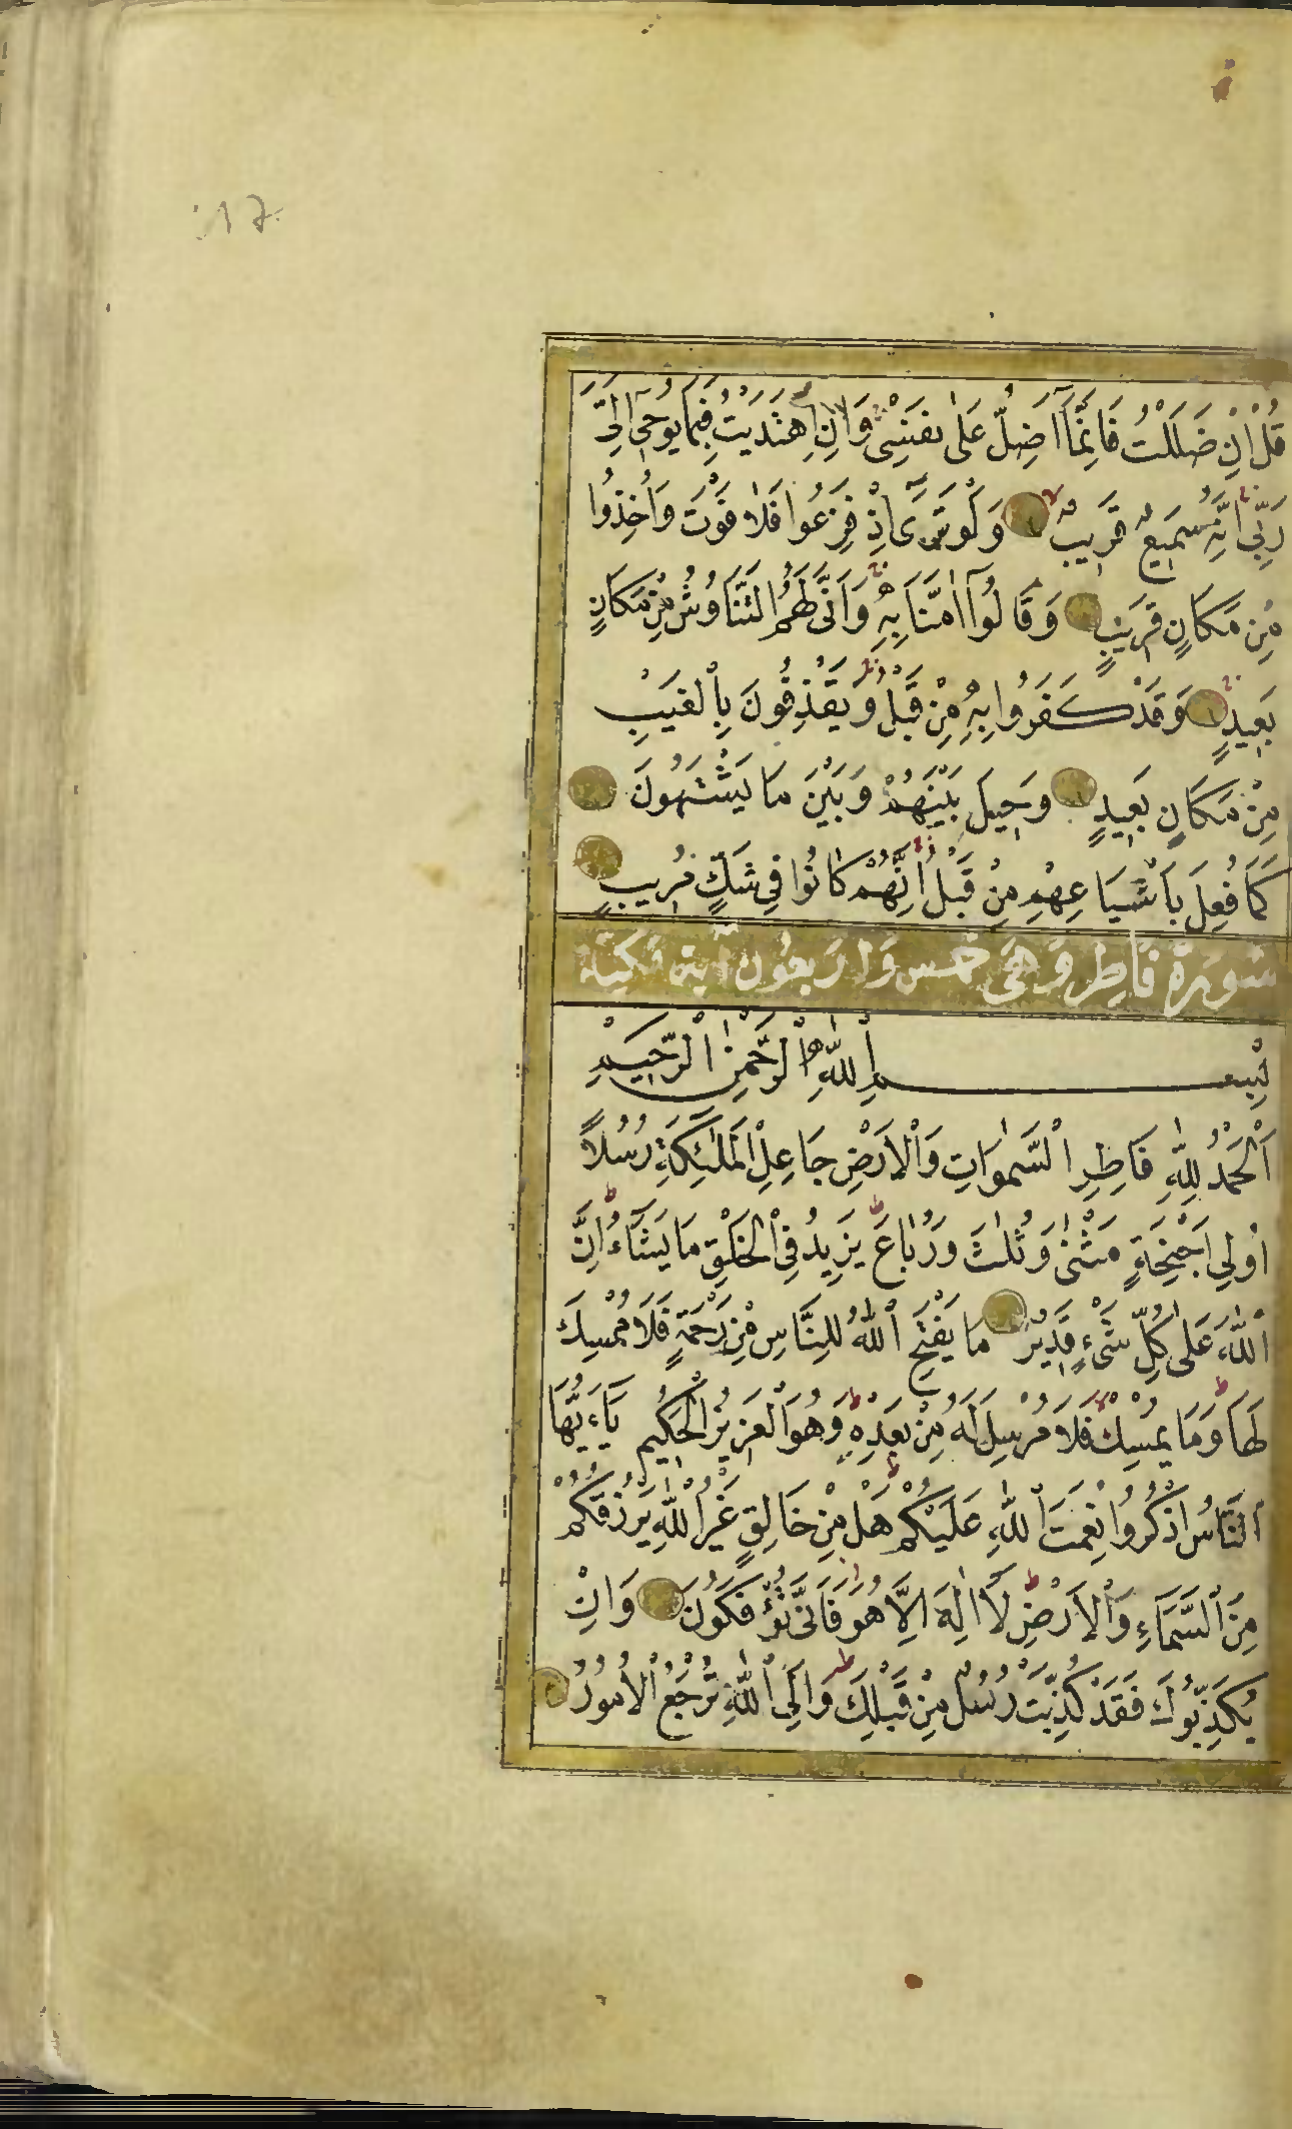 17
قُلْ اِنْ ضَلَلْتُ فَاِنَّمَٓا اَضِلُّ عَلٰى نَفْسِىْ وَاِنِ اهْتَدَيْتُ فَبِمَا يُوحِىٓ اِلَىَّ
رَبِّى اِنَّهُ سَمِيعٌ قَرِيبٌ وَلَوْ تَرٰٓى اِذْ فَزِعُوا فَلَا فَوْتَ وَاُخِذُوا
مِنْ مَكَانٍ قَرِيبٍ وَقَالُوٓا اٰمَنَّا بِهِ وَاَنّٰى لَهُمُ التَّنَاوُشُ مِنْ مَكَانٍ
بَعِيدٍ وَقَدْ كَفَرُوا بِهِ مِنْ قَبْلُ وَيَقْذِفُونَ بِالْغَيْبِ
مِنْ مَكَانٍ بَعِيدٍ وَحِيلَ بَيْنَهُمْ وَبَيْنَ مَا يَشْتَهُونَ
كَمَا فُعِلَ بِاَشْيَاعِهِمْ مِنْ قَبْلُ اِنَّهُمْ كَانُوا فِى شَكٍّ مُرِيبٍ
سُورَةُ فَاطِرٍ وَهِىَ خَمْسٌ وَاَرْبَعُونَ آيَةً مَكِّيَّة
بِسْمِ اللّٰهِ الرَّحْمٰنِ الرَّحِيمِ
اَلْحَمْدُ لِلّٰهِ فَاطِرِ السَّمٰوَاتِ وَالْاَرْضِ جَاعِلِ الْمَلٰئِكَةِ رُسُلًا
اُولِى اَجْنِحَةٍ مَثْنٰى وَثُلٰثَ وَرُبَاعَ يَزِيدُ فِى الْخَلْقِ مَا يَشَاءُ اِنَّ
اللّٰهَ عَلٰى كُلِّ شَىْءٍ قَدِيرٌ مَا يَفْتَحِ اللّٰهُ لِلنَّاسِ مِنْ رَحْمَةٍ فَلَا مُمْسِكَ
لَهَا وَمَا يُمْسِكْ فَلَا مُرْسِلَ لَهُ مِنْ بَعْدِهِ وَهُوَ الْعَزِيزُ الْحَكِيمُ يَاءَيُّهَا
النَّاسُ اذْكُرُوا نِعْمَتَ اللّٰهِ عَلَيْكُمْ هَلْ مِنْ خَالِقٍ غَيْرُ اللّٰهِ يَرْزُقُكُمْ
مِنَ السَّمَاءِ وَالْاَرْضِ لَا اِلٰهَ اِلَّا هُوَ فَاَنّٰى تُؤْفَكُونَ وَاِنْ
يُكَذِّبُوكَ فَقَدْ كُذِّبَتْ رُسُلٌ مِنْ قَبْلِكَ وَاِلَى اللّٰهِ تُرْجَعُ الْاُمُورُ